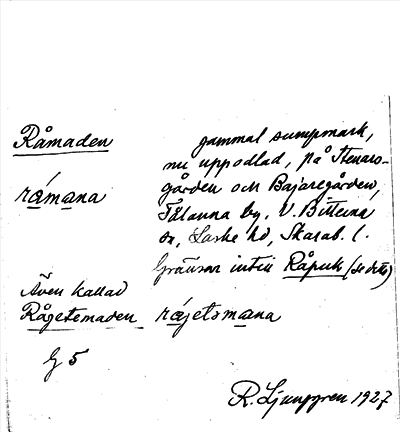 Råmaden
gammal sumpmark,
nu uppodlad, på Stenars-
gården och Bajaregården,
råmana
Fålanna by, V. Bitterna
sn, Laske hd, Skarab. l.
Gränsar intill Råpuk (se detta)
Även kallad
Rågetemaden råjetsmana
G 5
R. Ljunggren 1927